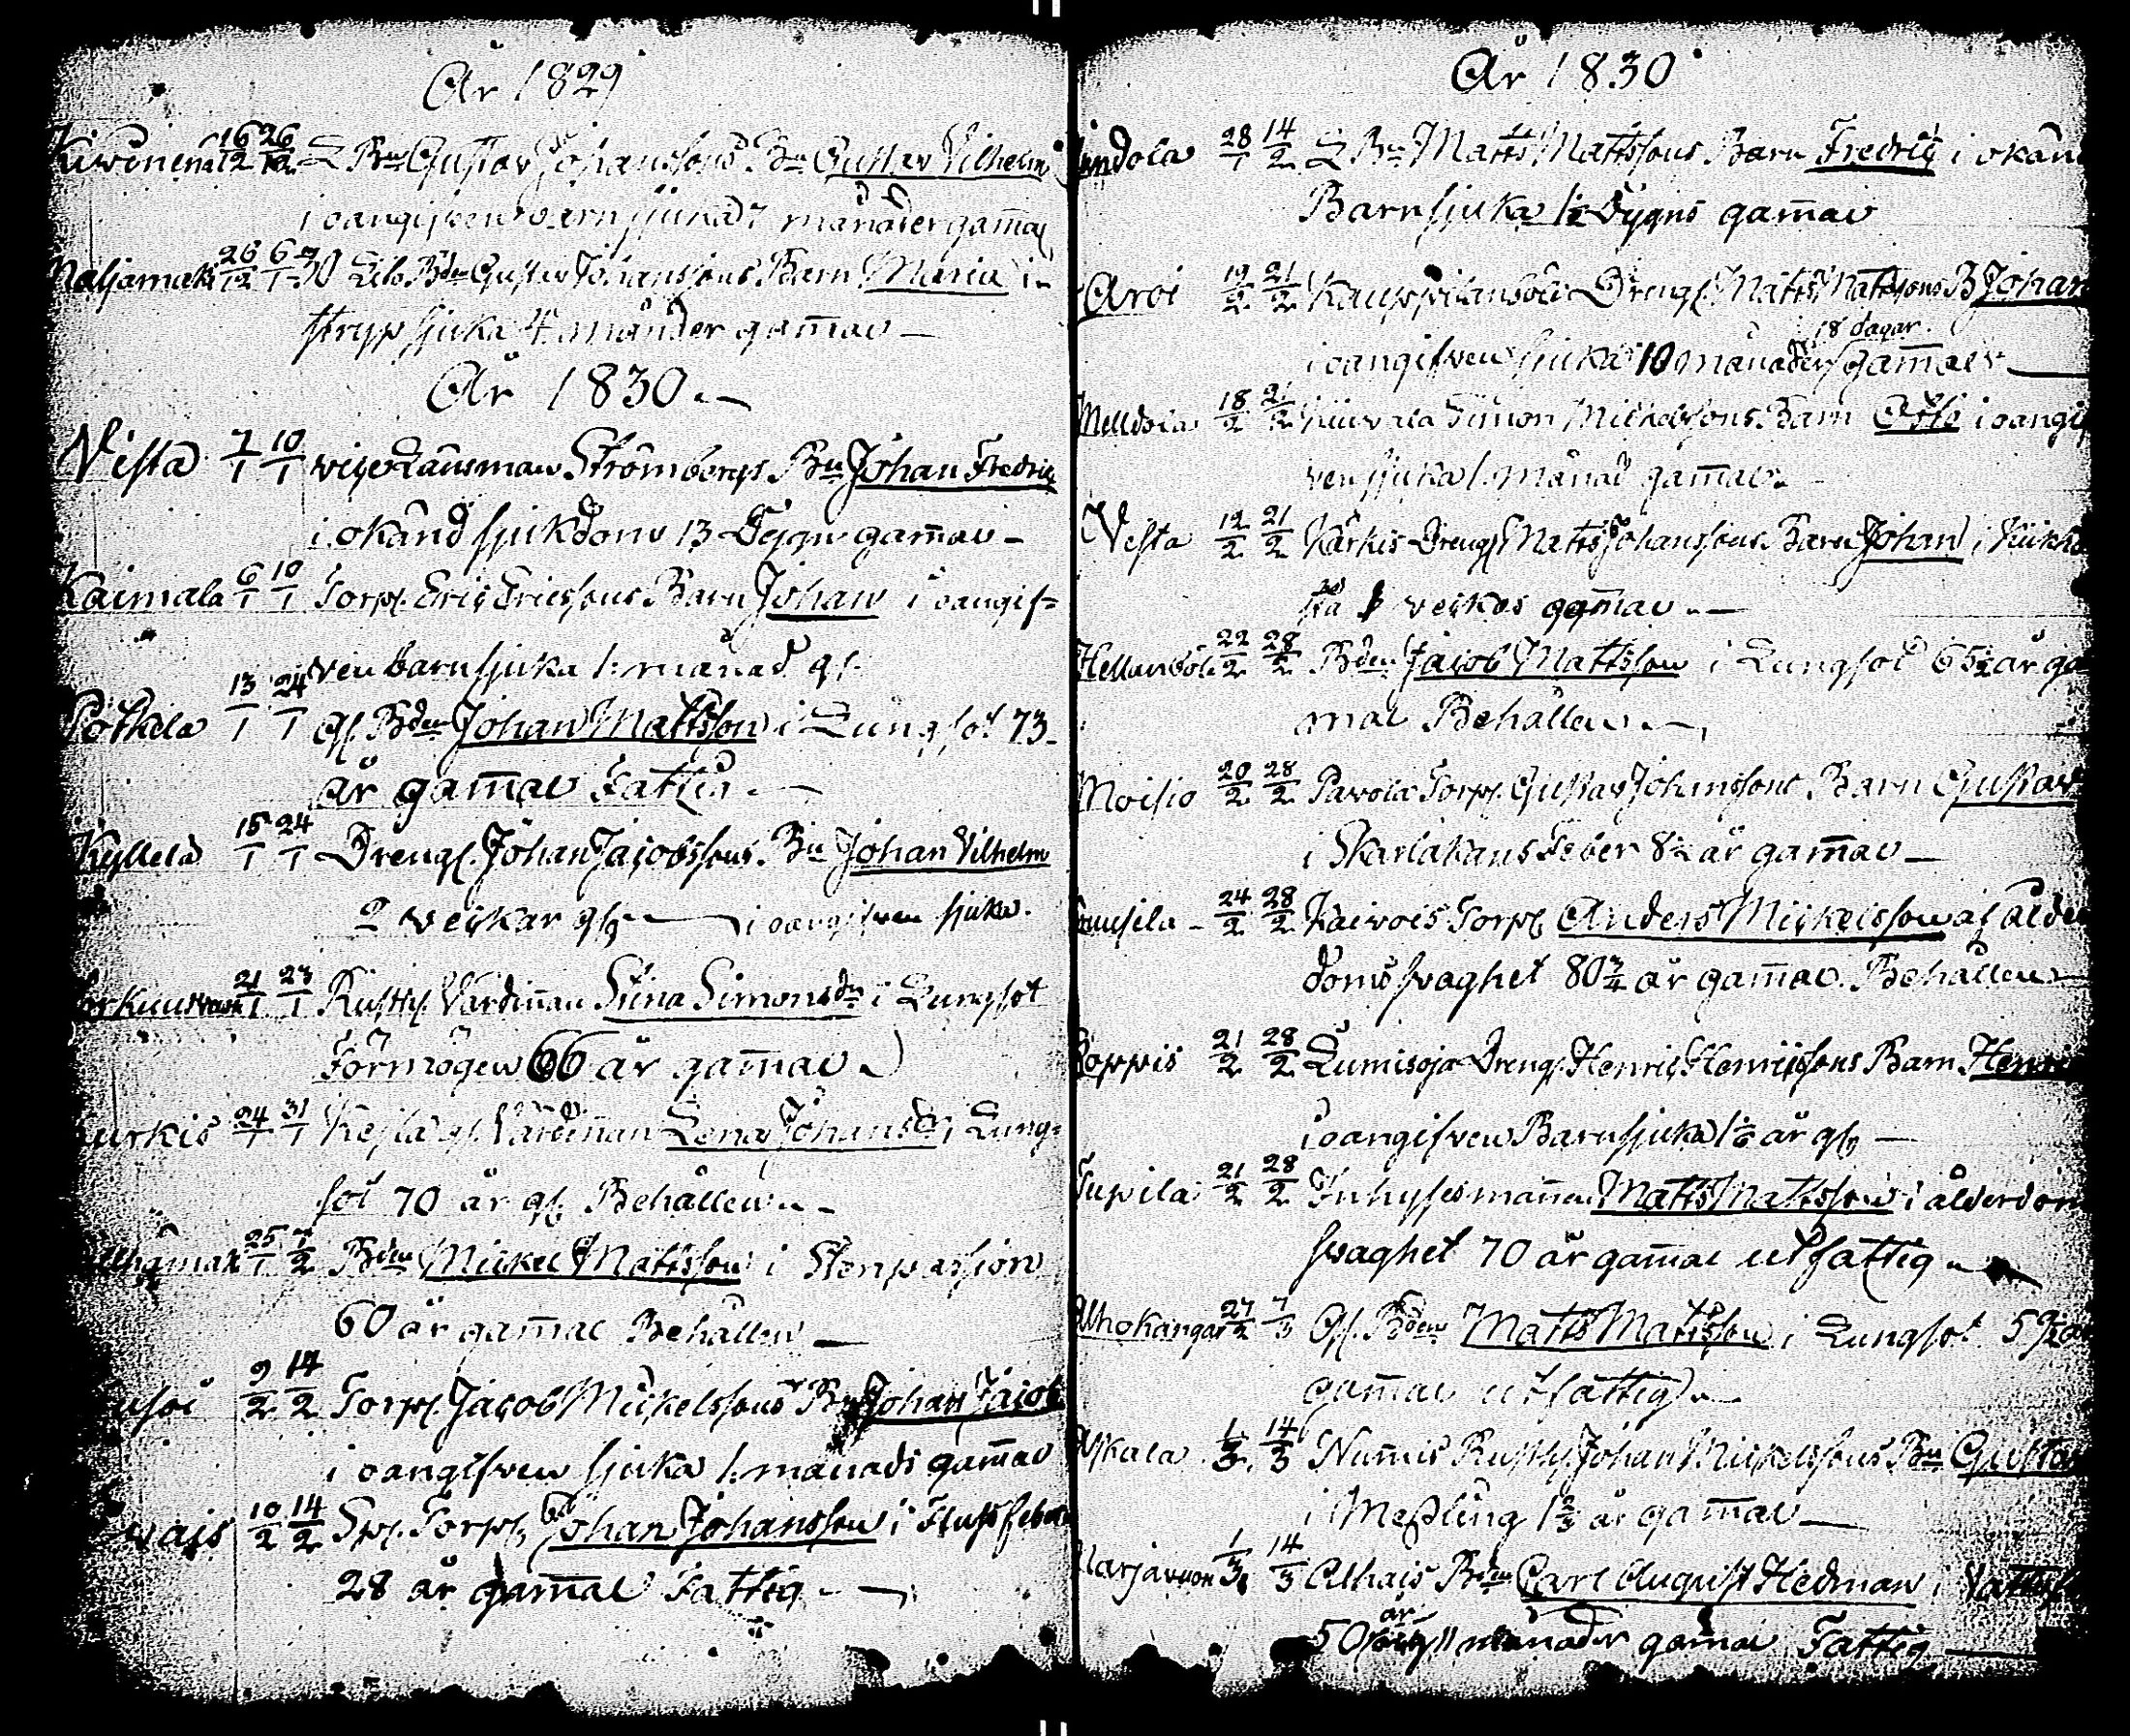 År 1829
16/12 26/12 L Bn Gustav Johanssons Bn Gustav Vilhelm
i oangifven barnsjuka 7 månader gam̄al
26/12 6/1 30 Bden Gustav Johanssons Barn Maria i
stryp sjuka 4 månder gam̄al —
År 1830. —
Vesta 7/1 10/1 vice Länsman Strömbergs Bn Johan Fredric
i okänd sjukdom 13 Dygn gam̄al —
Kaimala 6/1 10/1 Torp. Eric Ericssons Barn Johan i oangif=
ven barnsjuka 1. månad gl.
Pötkelä 13/1 24/1 Gl. Bden Johan Mattsson i Lungsot 73
år gam̄al Fattig. —
Kyllelä 15/1 24/1 Drengs. Johan Jacobssons Bn Johan Vilhelm
2 veckar gl. — i oangifven sjuka.
21/1 23/1 Rusth. Värdinnan Stina Simonsdr i Lungsot
Förmögen 66 år gam̄al
urkis 24/1 31/1 Kejsa gl. Värdinnan Lena Johansdr i Lung=
sot 70 år gl. Behållen. -
25/1 7/2 Bden Mickel Mattsson i Stenpassion
60 år gam̄al Behållen —
9/2 14/2 Torp. Jacob Mickelssons Bn Johan Jacob
i oangifven sjuka 1. månads gam̄al
10/2 14/2 Sp. Torp. Johan Johansson i Flussfeber
28 år gam̄al Fattig. —
År 1830
28/1 14/2 L Bn Matts Mattssons Barn Fredric i okän
Barnsjuka 1/2 Dygns gam̄al
Aroi 19/2 21/2 Kauppilansöli Drengs. Matts Mattssons B Johan
18 dagar.
i oangifven sjuka 10 månader gam̄al —
Melldola 18/2 21/2 Simon Mickelssons Barn Otto i oangif
ven sjuka 1. månad gam̄al. -
Vesta 12/2 21/2 Kärkis Drengs Matts Johanssons Barn Johan i Kikho
sta veckos gam̄al. —
22/2 28/2 Bden Jacob Mattsson i Lungsot 65 1/2 år ga
mal Behållen. —
Moisio 20/2 28/2 Pavola Torp. Gustav Johanssons Barn Gustav
i Skarlakans Feber 8 1/2 år gam̄al —
24/2 28/2 Kaivois Torp. Anders Mickelsson af ålder
doms svaghet 80 3/4 år gam̄al. Behållen —
21/2 28/2 Lumisoja Drengs. Henric Henricssons Barn Henric
i oangifven Barnsjuka 1 1/6 år gl. —
Tupila 21/2 28/2 Inhyses mannen Matts Mattsson i ålderdom
svaghet 70 år gam̄al utfattig. —
Alhokangas 27/2 7/3 Gl. Bden Matts Mattsson i Lungsot 59 1/2
gam̄al utfattig. —
1/3 14/3 Num̄is Rusth. Johan Mickelssons Bn Gustav
i Meßling 1 2/3 år gam̄al —
1/3 14/3 Alhais Bden Carl August Hedman i Vattusot
år
50 11 månader gam̄al Fattig —